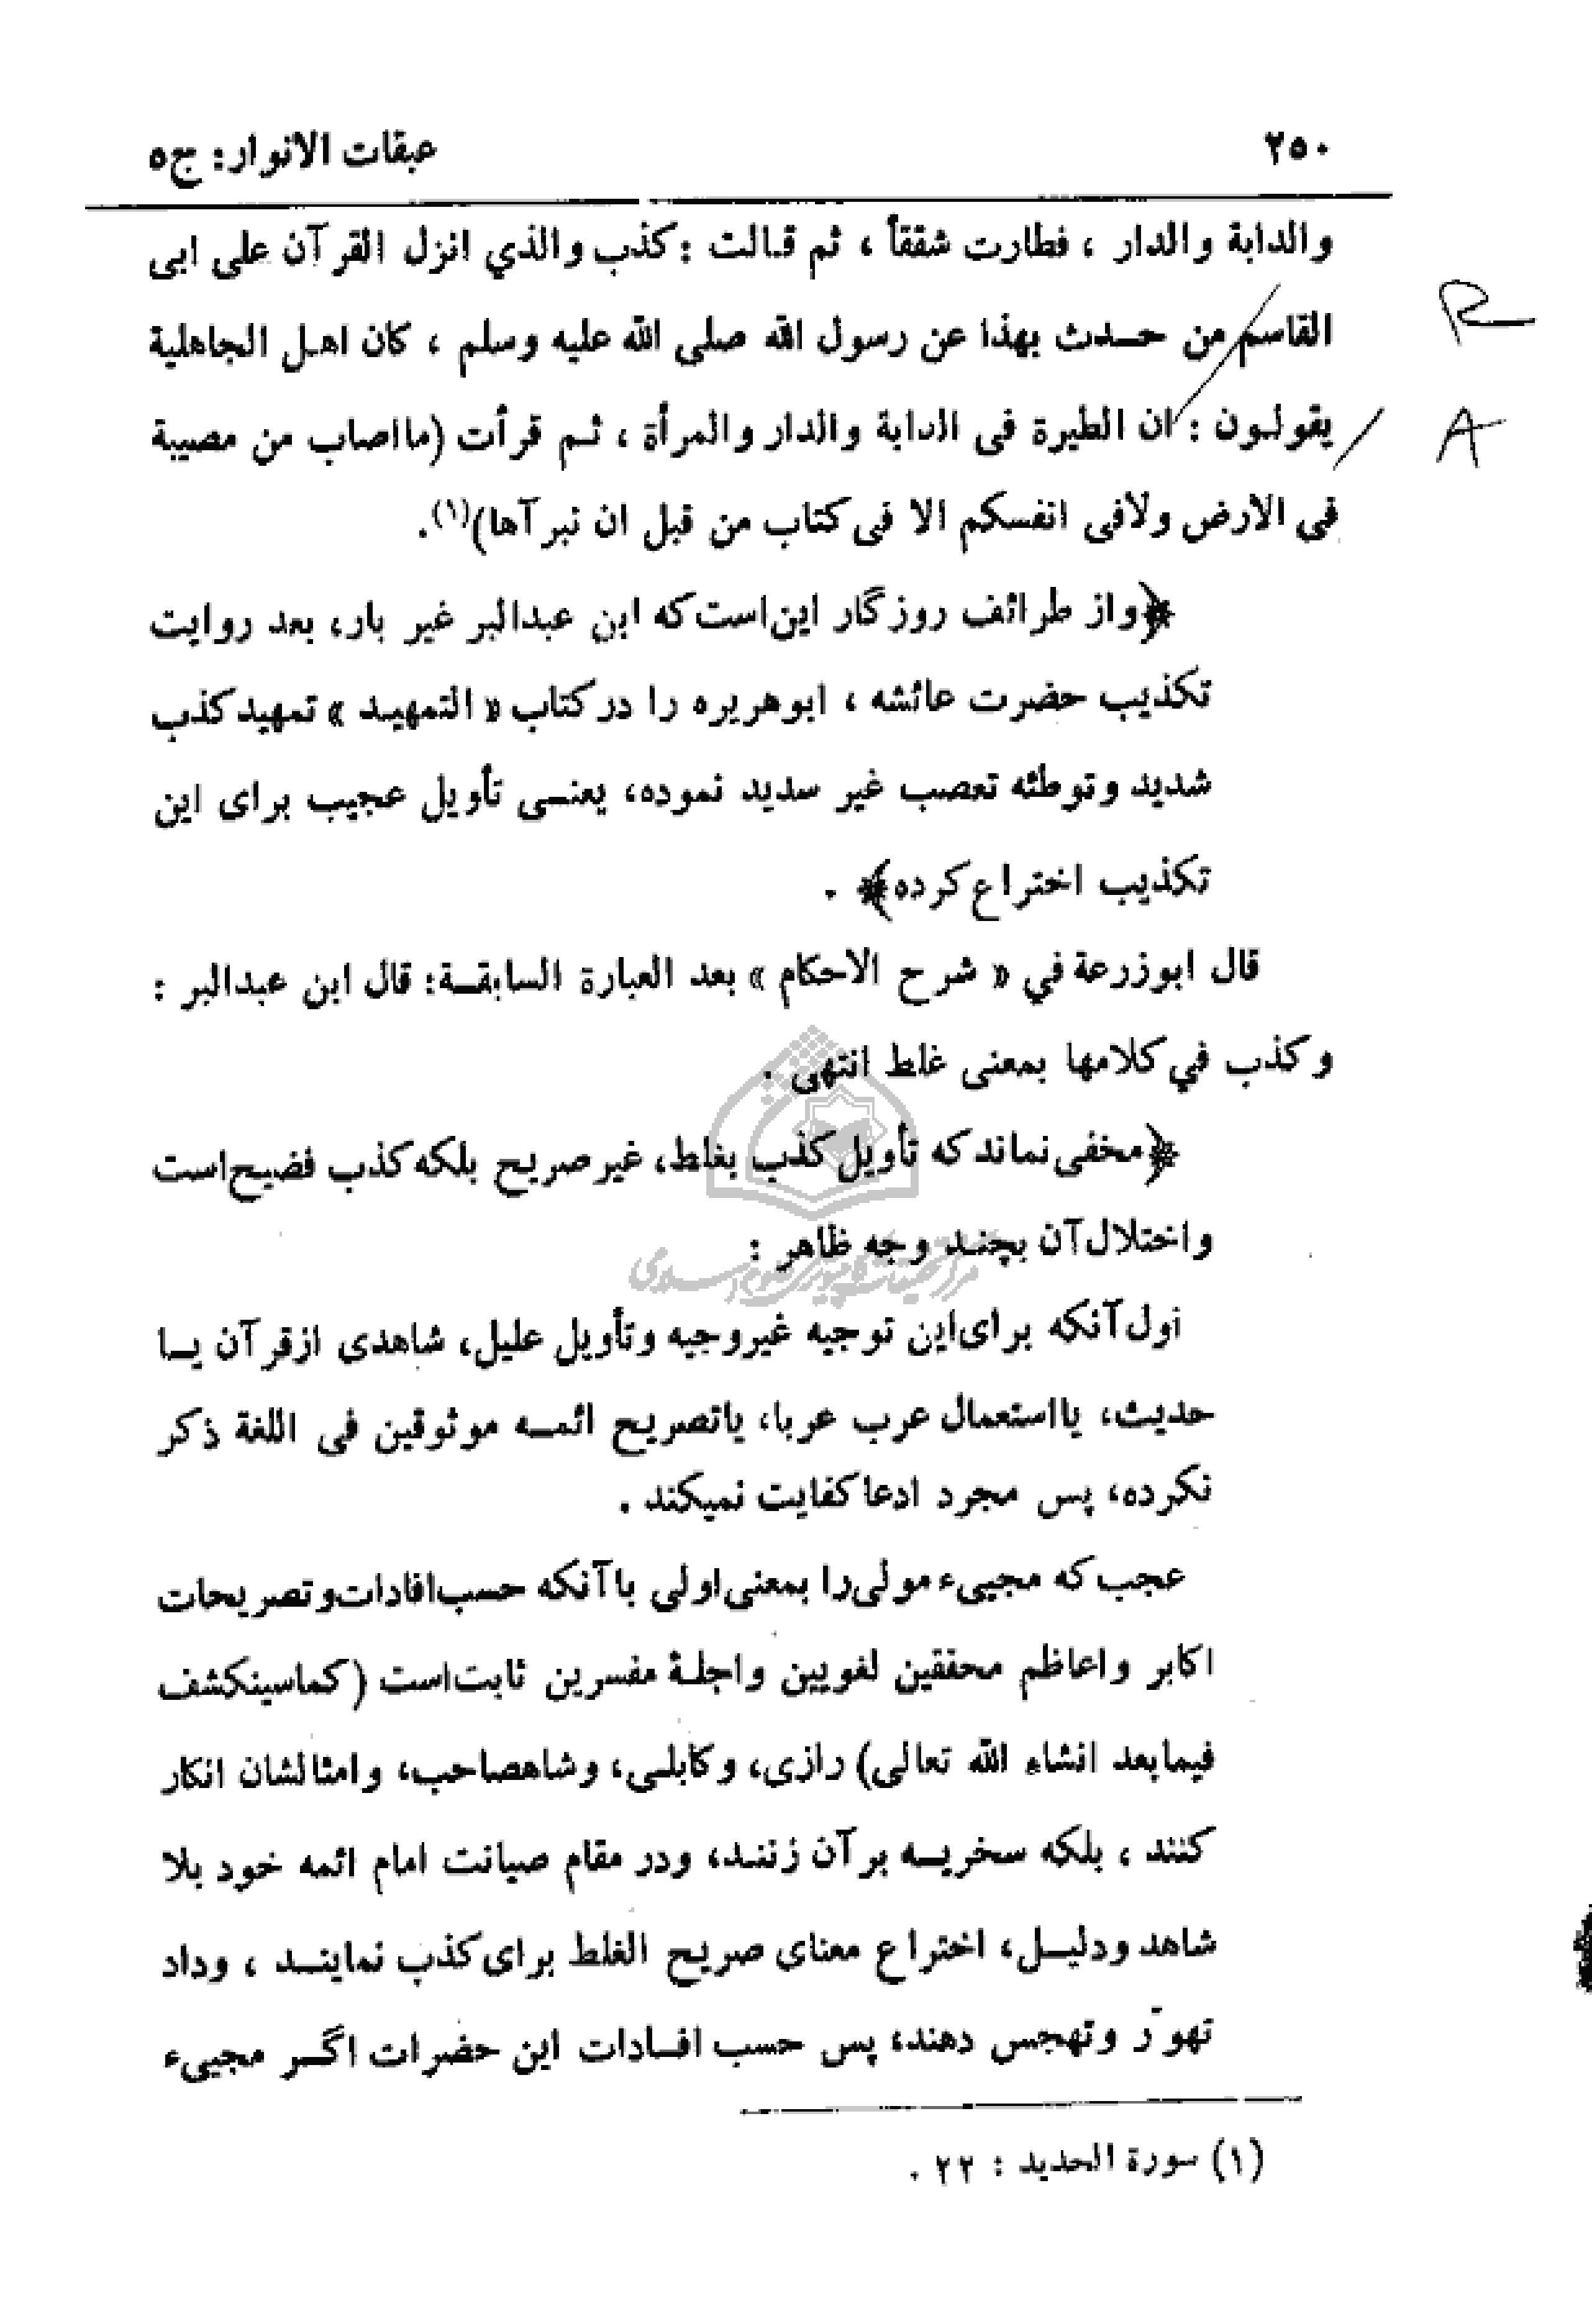 ٢٥٠ عبقات الانوار: ج٥
والدابة والدار ، فطارت شققأ ، ثم قالت : كذب والذي انزل القرآن على ابى
القاسم من حدث بهذا عن رسول الله صلى الله عليه وسلم ، كان اهل الجاهلية
يقولون : ان الطيرة فى الدابة والدار والمرأة ، ثم قرأت (مااصاب من مصيبة
فى الارض ولافى انفسكم الا فى كتاب من قبل ان نبرآها)(١).
﴿واز طرائف روزگار این‌است که ابن عبدالبر غیر بار، بعد روایت
تکذیب حضرت عائشه ، ابوهریره را در کتاب « التمهید » تمهید کذب
شدید وتوطئه تعصب غیر سدید نموده، یعنی تأویل عجیب برای این
تکذیب اختراع کرده﴾ .
قال ابوزرعة في « شرح الاحكام » بعد العبارة السابقة: قال ابن عبدالبر :
وكذب في كلامها بمعنى غلط انتهى .
﴿مخفی نماند که تأویل کذب بغلط، غیر صریح بلکه کذب فضیح‌است
واختلال آن بچند وجه ظاهر :
اول آنکه برای‌این توجیه غیروجیه وتأویل علیل، شاهدی ازقرآن یا
حدیث، یااستعمال عرب عربا، یاتصریح ائمه موثوقین فی اللغة ذکر
نکرده، پس مجرد ادعا کفایت نمیکند .
عجب که مجیی‌ء مولی‌را بمعنی‌اولی باآنکه حسب‌افادات‌وتصریحات
اکابر واعاظم محققین لغویین واجلۀ مفسرین ثابت‌است (کماسینکشف
فیمابعد انشاء الله تعالی) رازی، وکابلی، وشاهصاحب، وامثالشان انکار
کنند ، بلکه سخریه بر آن زنند، ودر مقام صیانت امام ائمه خود بلا
شاهد ودلیل، اختراع معنای صریح الغلط برای کذب نمایند ، وداد
تهوّر وتهجس دهند، پس حسب افادات این حضرات اگر مجیی‌ء
(١) سورة الحديد : ٢٢ .
R
A
مرکز تحقیقات کامپیوتری علوم اسلامی